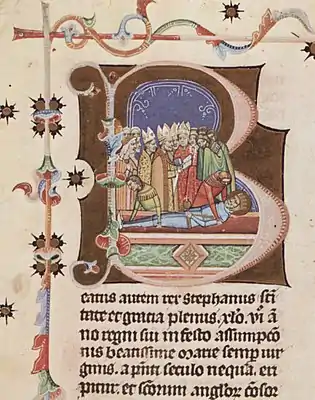 B
eatus autem rex Stephanus sci
tate et gratia plenus, xlo. vi. a
no regni sui in festo assumpcio
nis beatissime Marie semp uir
ginis. a pnti seculo nequa. eri
pitur. et scorum angelor consor